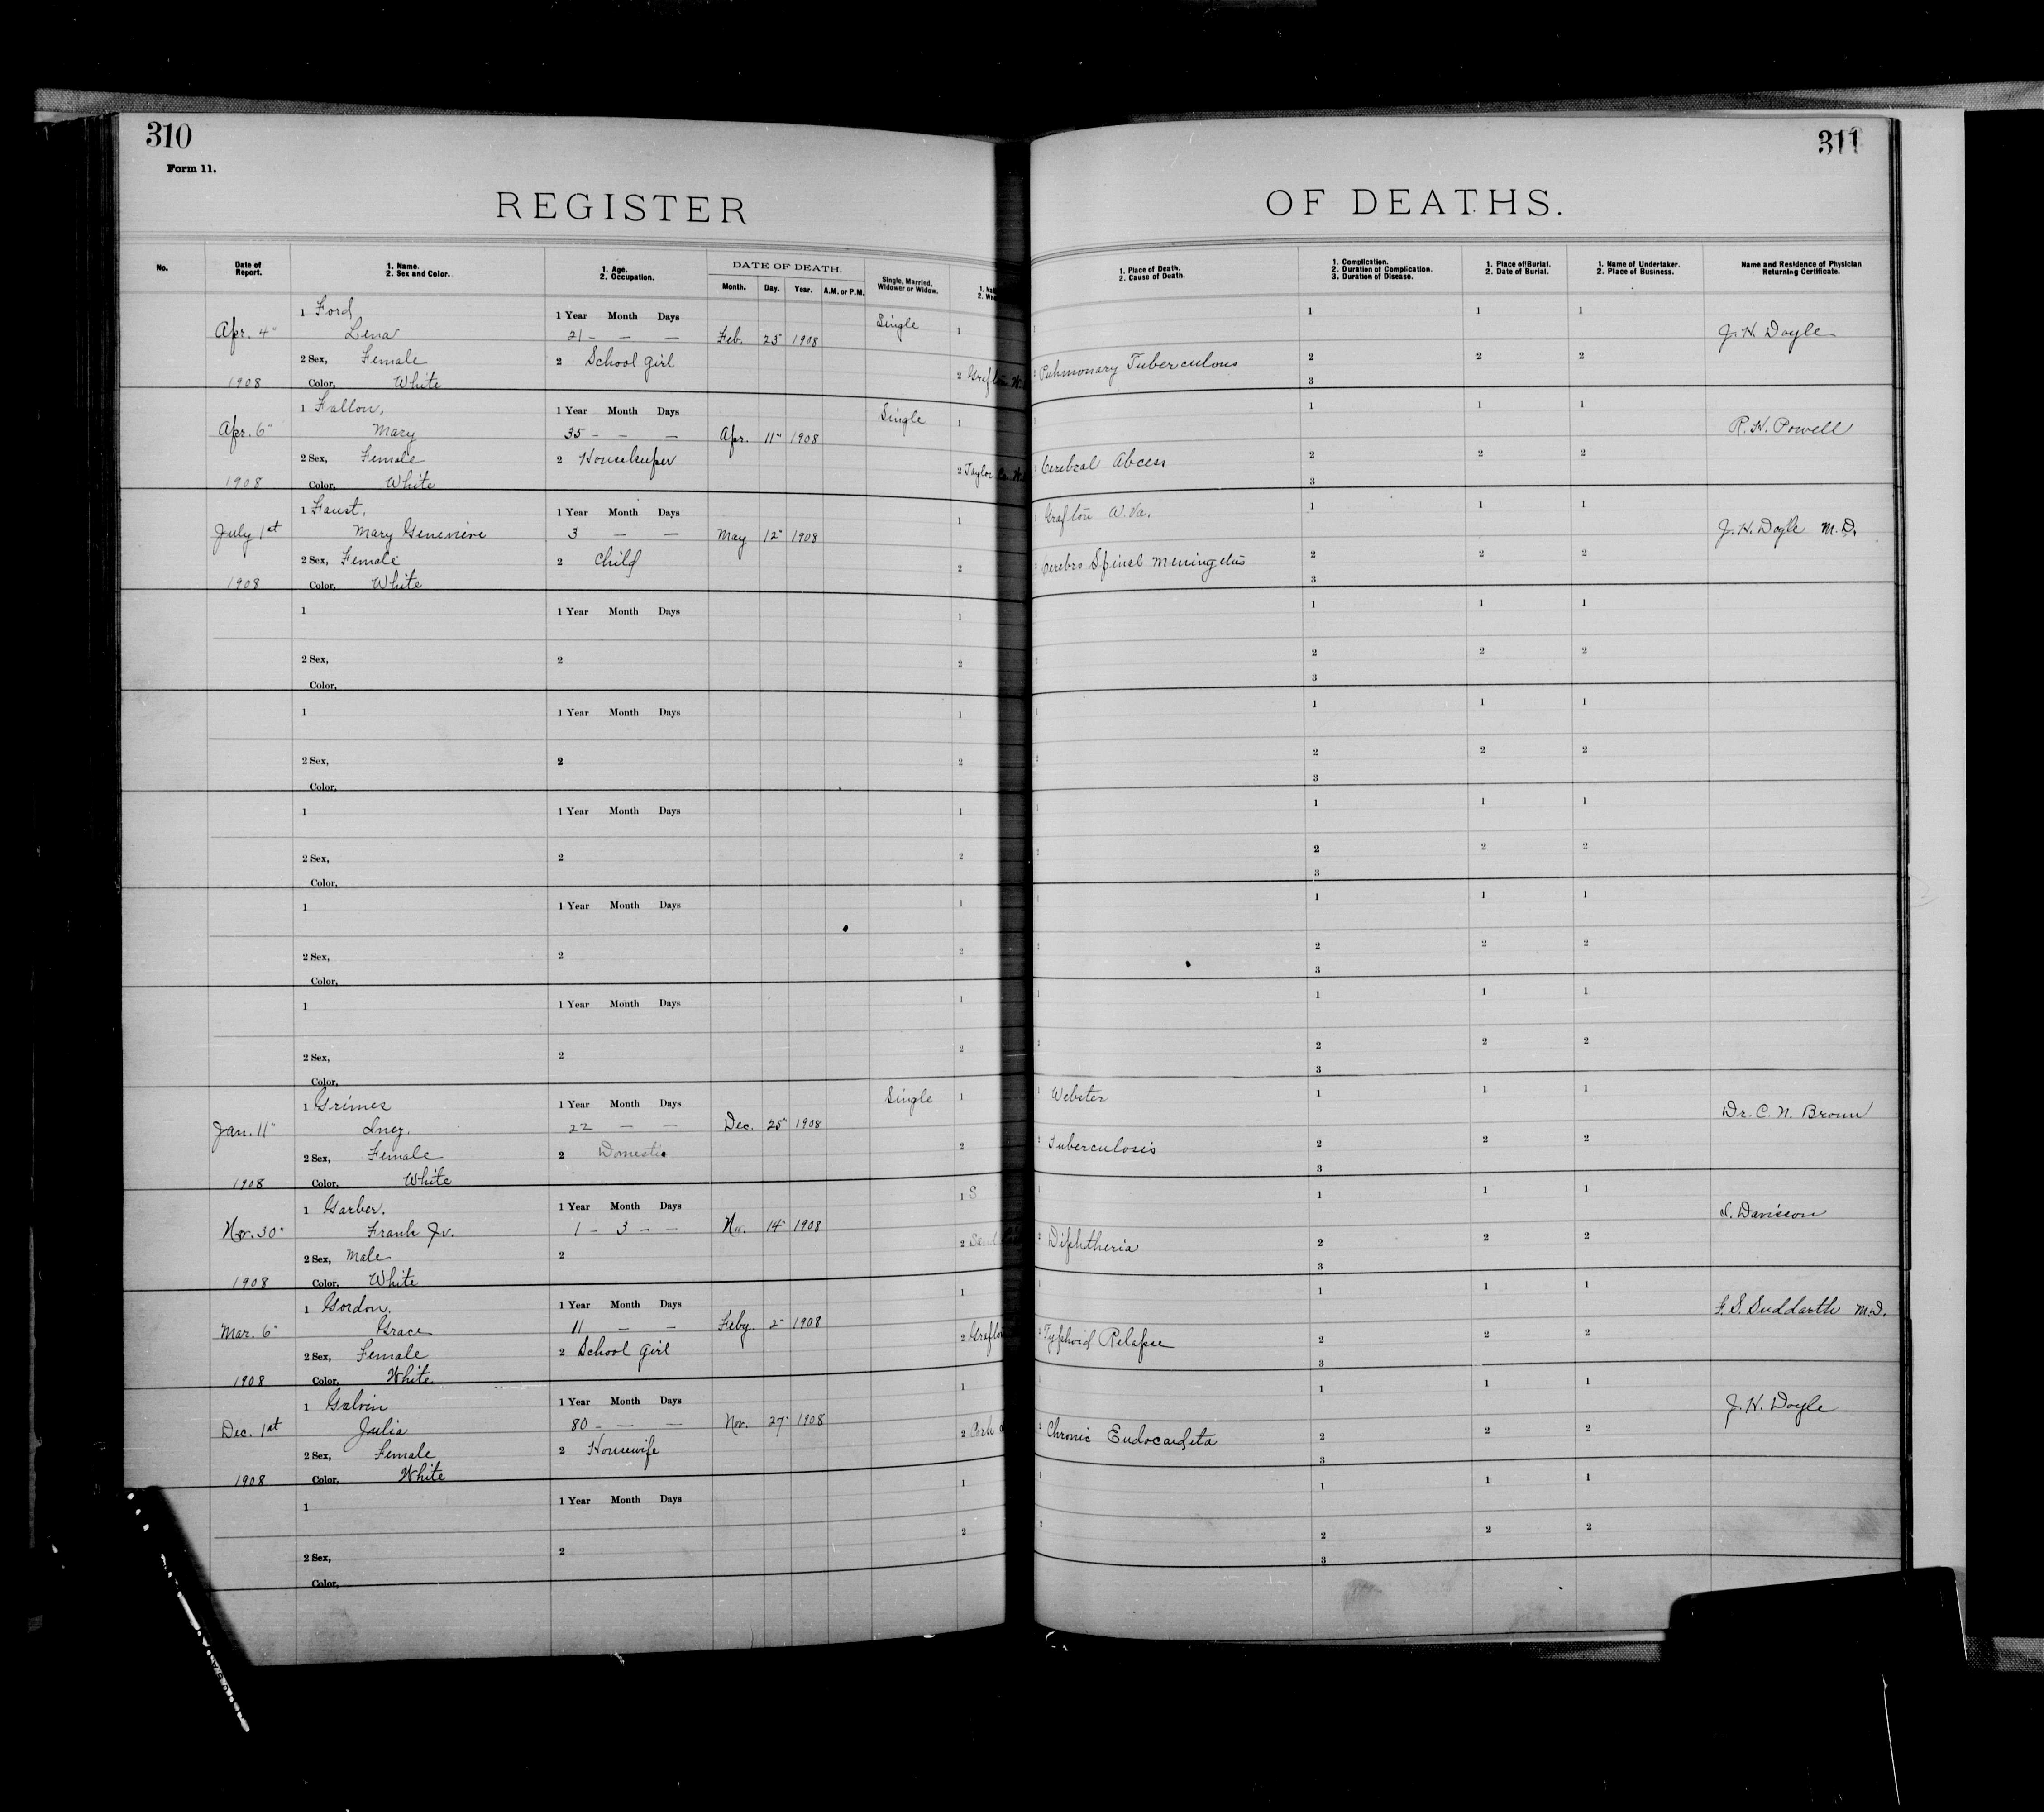 310
311
Form 11.
REGISTER OF DEATHS.
No.
Date of Report.
1. Name. 2. Sex and Color.
1. Age. 2. Occupation.
DATE OF DEATH.
Month. Day. Year. A.M. or P.M.
Single, Married, Widower or Widow.
1. Place of Death. 2. Cause of Death.
1. Complication. 2. Duration of Complication. 3. Duration of Disease.
1. Place of Burial. 2. Date of Burial.
1. Name of Undertaker. 2. Place of Business.
Name and Residence of Physician Returning Certificate.
1 Ford, 1 Year Month Days Single 1 1 1 1 1
Apr. 4" Lena 21 – – – Feb. 25" 1908 J. H. Doyle
2 Sex, Female 2 School girl 2 Grafton 2 Pulmonary Tuberculous 2 2 2
1908 Color, White 3
1 Fallon, 1 Year Month Days Single 1 1 1 1 1
Apr. 6" Mary 35 – – – Apr. 11" 1908 R. H. Powell
2 Sex, Female 2 Housekeeper 2 Taylor Co. 2 Cerebral Abcess 2 2 2
1908 Color, White 3
1 Faust, 1 Year Month Days 1 1 Grafton W. Va. 1 1 1
July 1st Mary Genevieve 3 – – May 12" 1908 J. H. Doyle M.D.
2 Sex, Female 2 Child 2 2 Cerebro Spinal Meningetus 2 2 2
1908 Color, White 3
1 1 Year Month Days 1 1 1 1 1
2 Sex, 2 2 2 2 2 2
Color, 3
1 1 Year Month Days 1 1 1 1 1
2 Sex, 2 2 2 2 2 2
Color, 3
1 1 Year Month Days 1 1 1 1 1
2 Sex, 2 2 2 2 2 2
Color, 3
1 1 Year Month Days 1 1 1 1 1
2 Sex, 2 2 2 2 2 2
Color, 3
1 1 Year Month Days 1 1 1 1 1
2 Sex, 2 2 2 2 2 2
Color, 3
1 Grimes 1 Year Month Days Single 1 1 Webster 1 1 1
Jan. 11" Inez. 22 – – Dec. 25" 1908 Dr. C. N. Brown
2 Sex, Female 2 Domestic 2 2 Tuberculosis 2 2 2
1908 Color, White 3
1 Garber. 1 Year Month Days 1 S 1 1 1 1
Nov. 30" Frank Jr. 1 – 3 – – Nov. 14" 1908 Davisson
2 Sex, Male 2 2 2 Diphtheria 2 2 2
1908 Color, White 3
1 Gordon, 1 Year Month Days 1 1 1 1 1
Mar. 6" Grace 11 – – Feby. 2" 1908 F. S. Suddarth M.D.
2 Sex, Female 2 School girl 2 Grafton 2 Typhoid Relapse 2 2 2
1908 Color, White 3
1 Galvin 1 Year Month Days 1 1 1 1 1
Dec. 1st Julia 80 – – – Nov. 27" 1908 J. H. Doyle
2 Sex, Female 2 Housewife 2 Cork 2 Chronic Endocardita 2 2 2
1908 Color, White 3
1 1 Year Month Days 1 1 1 1 1
2 Sex, 2 2 2 2 2 2
Color, 3